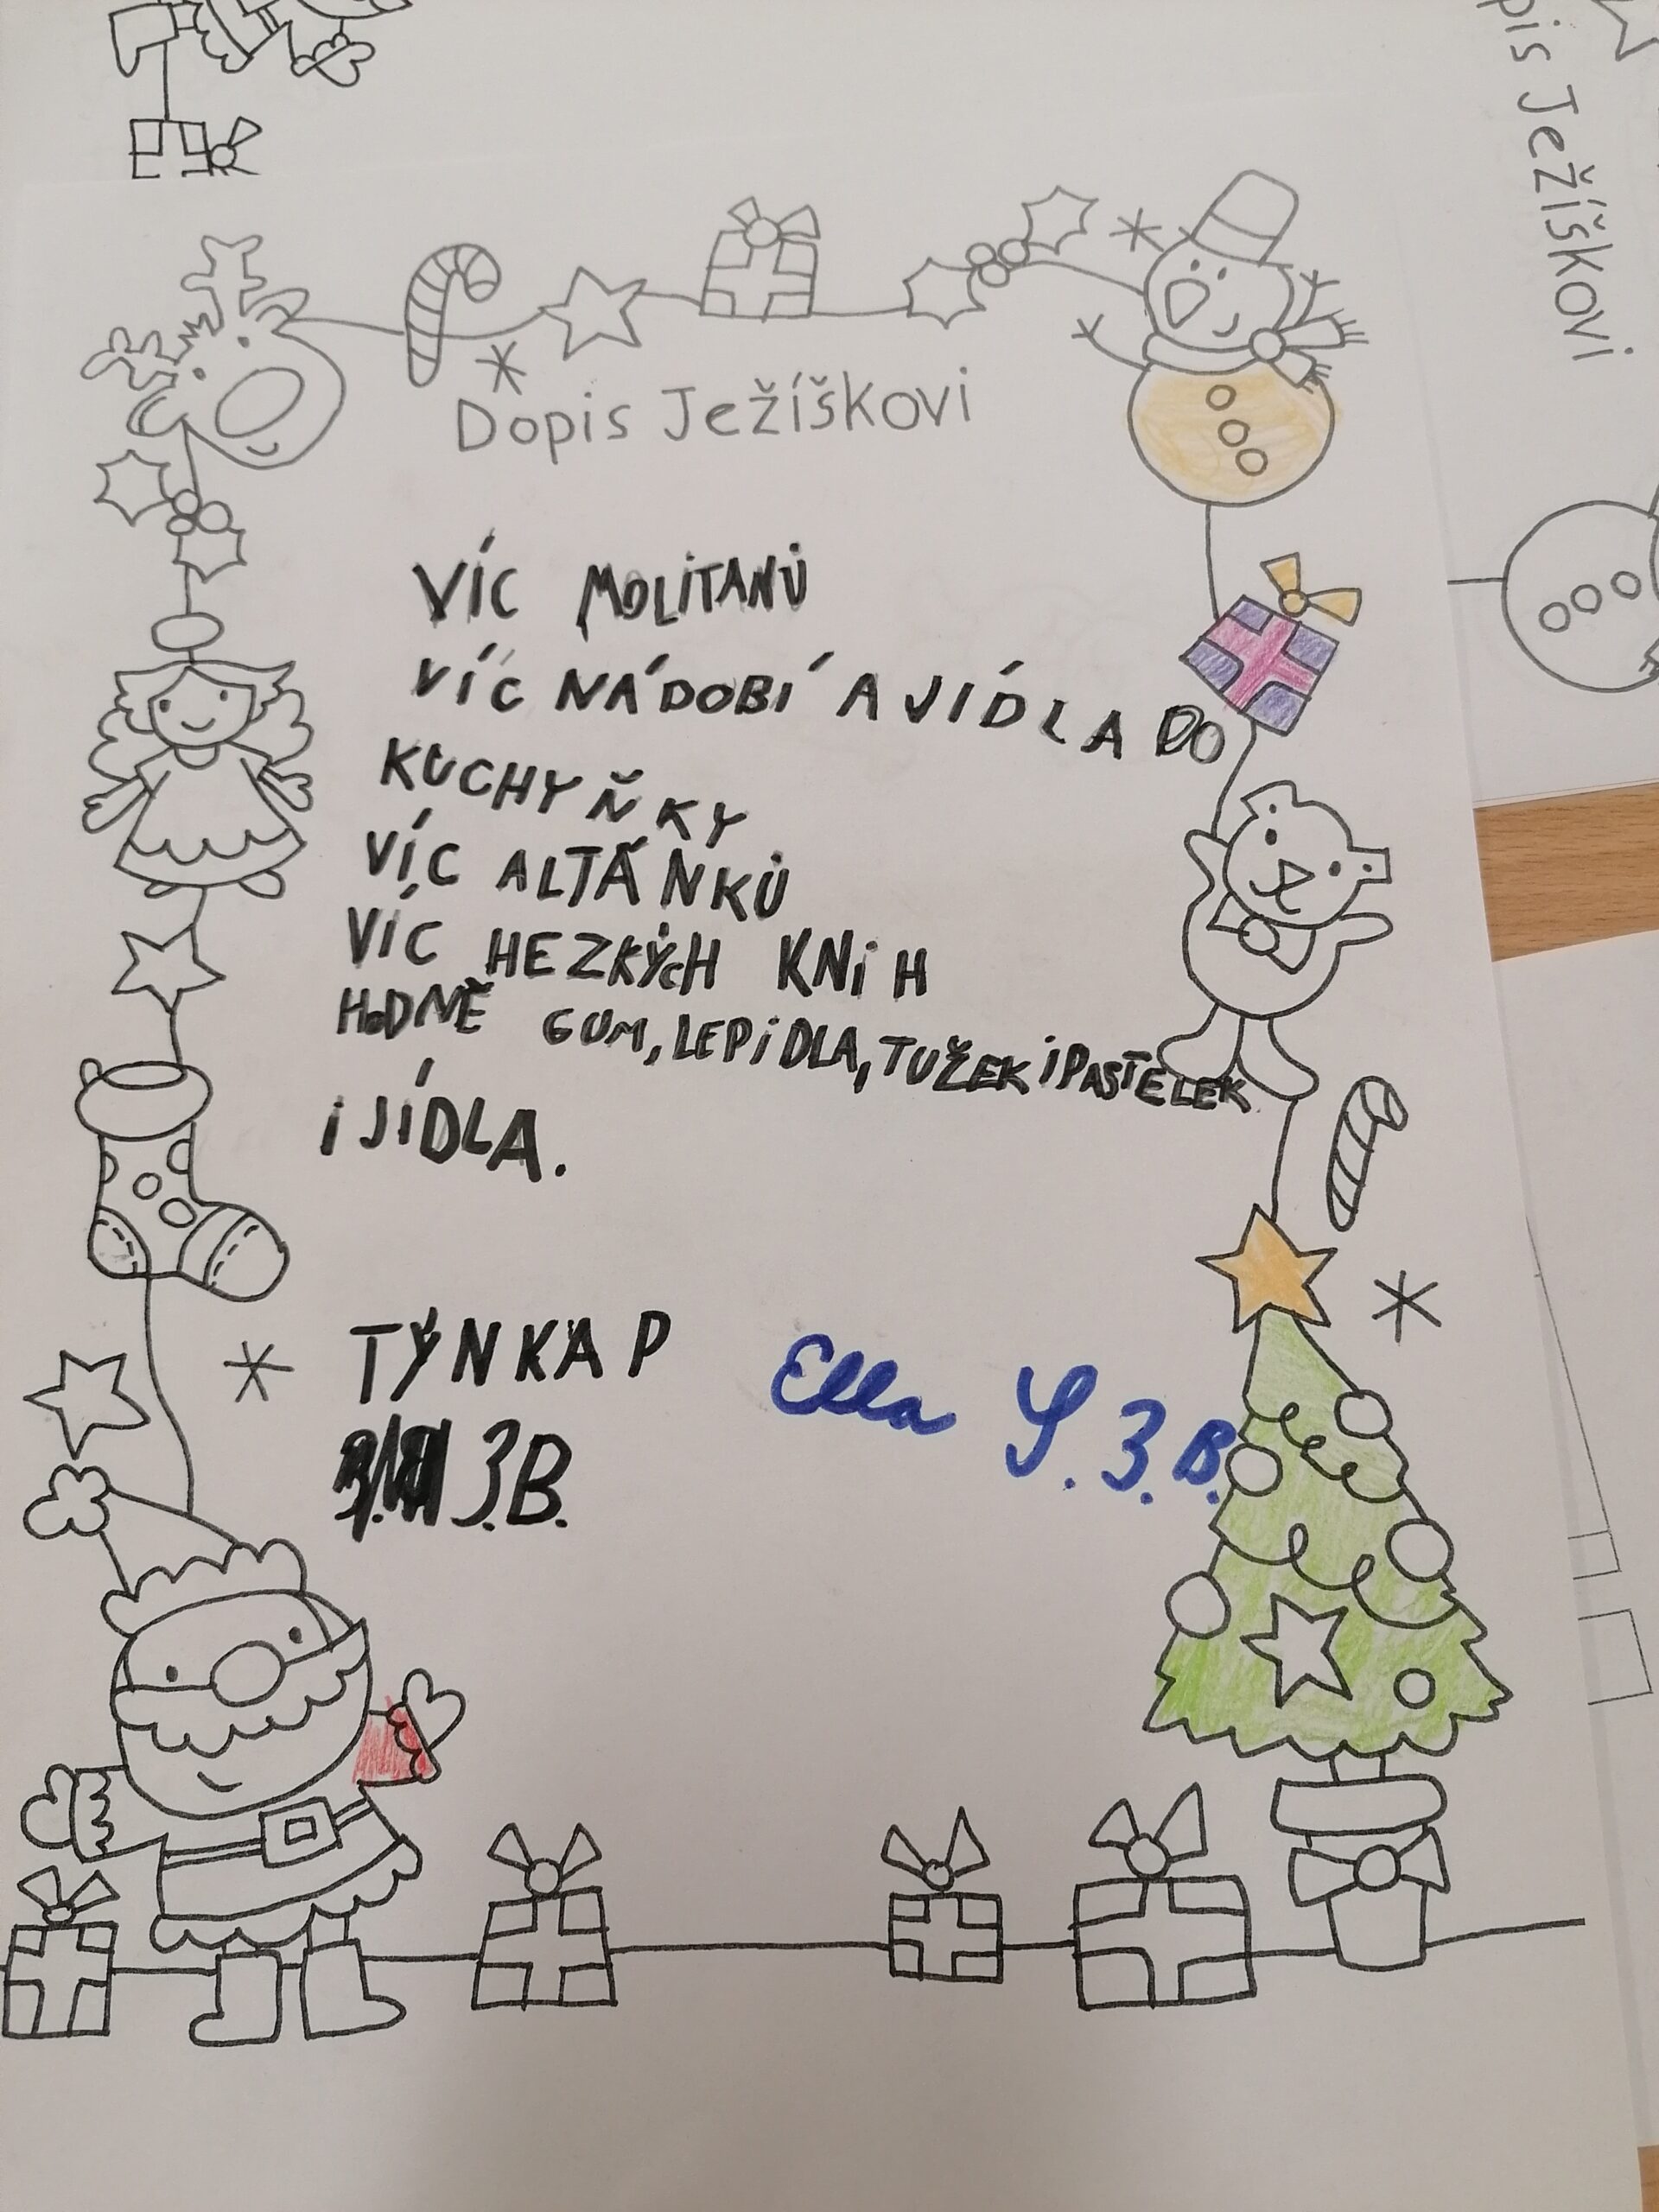 Dopis Ježíškovi
VÍC MOLiTANŮ
VÍC NÁDOBÍ A JÍDLA DO
KUCHYŇKY
VÍC ALTÁŇKŮ
VÍC HEZKÝcH KNiH
HoDNĚ GUM, LEPiDLA, TUŽEK i PASTELEK
i JÍDLA.
TÝNKA P
3.B.
Ella Y. 3.B.
pis Ježíškovi